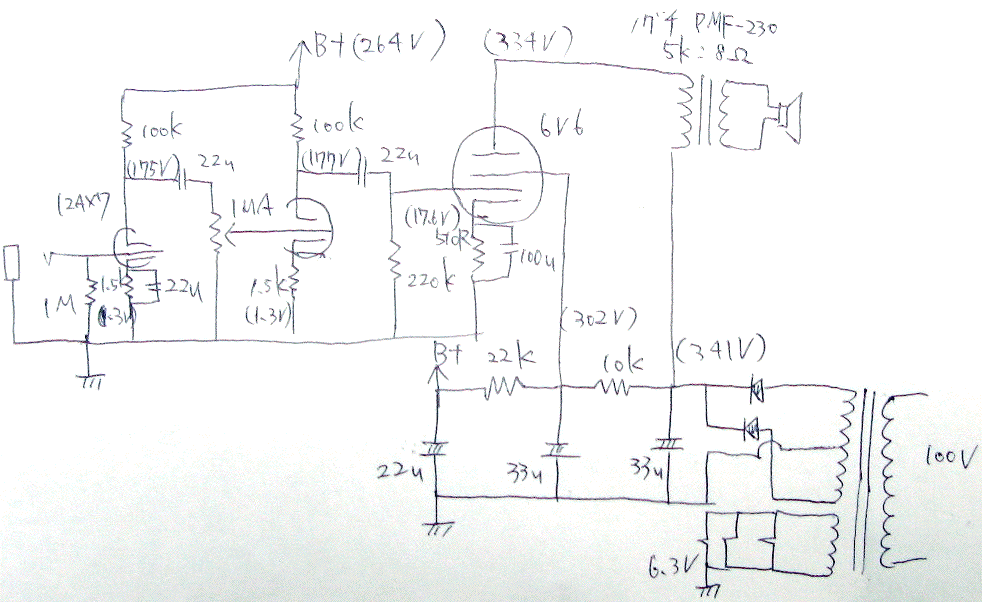 B+ (264V)
(334V)
ハンヂ PMF-230
5k : 8Ω
6V6
100k
100k
(175V)
22u
(177V)
22u
12AX7
1MA
(17.6V)
510R
100u
1M
1.5k
(1.3V)
22u
1.5k
(1.3V)
220k
(302V)
(341V)
B+
22k
10k
22u
33u
33u
100V
6.3V